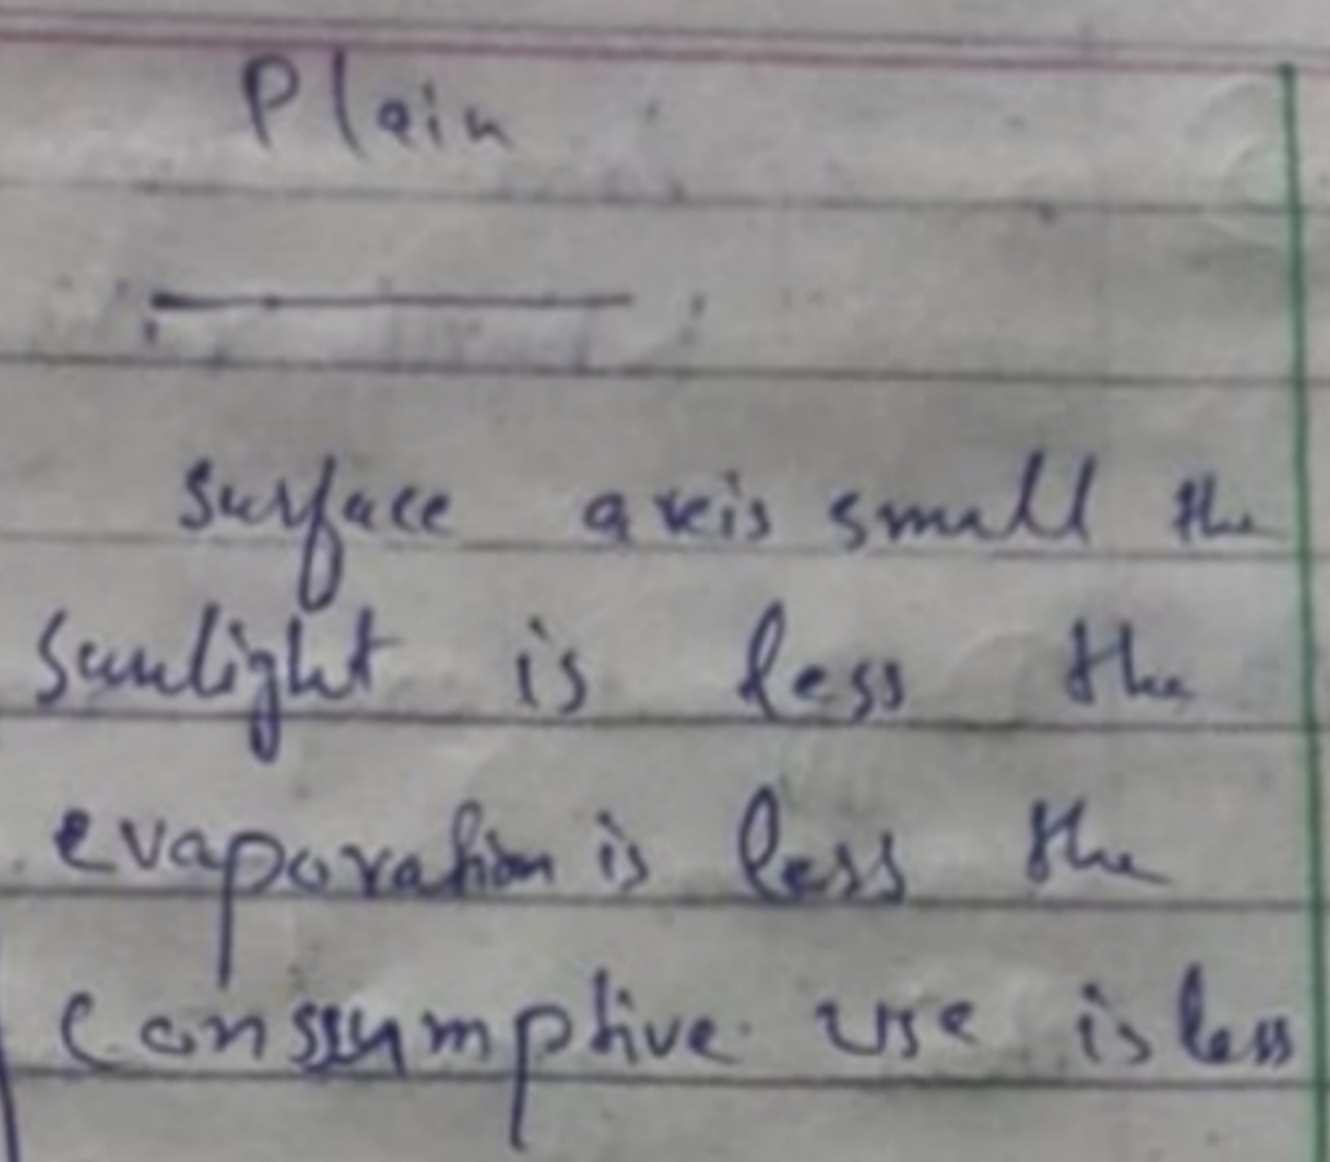 Plain
surface axeis small the
sunlight is less the
evaporation is less the
Conssumptive use is less